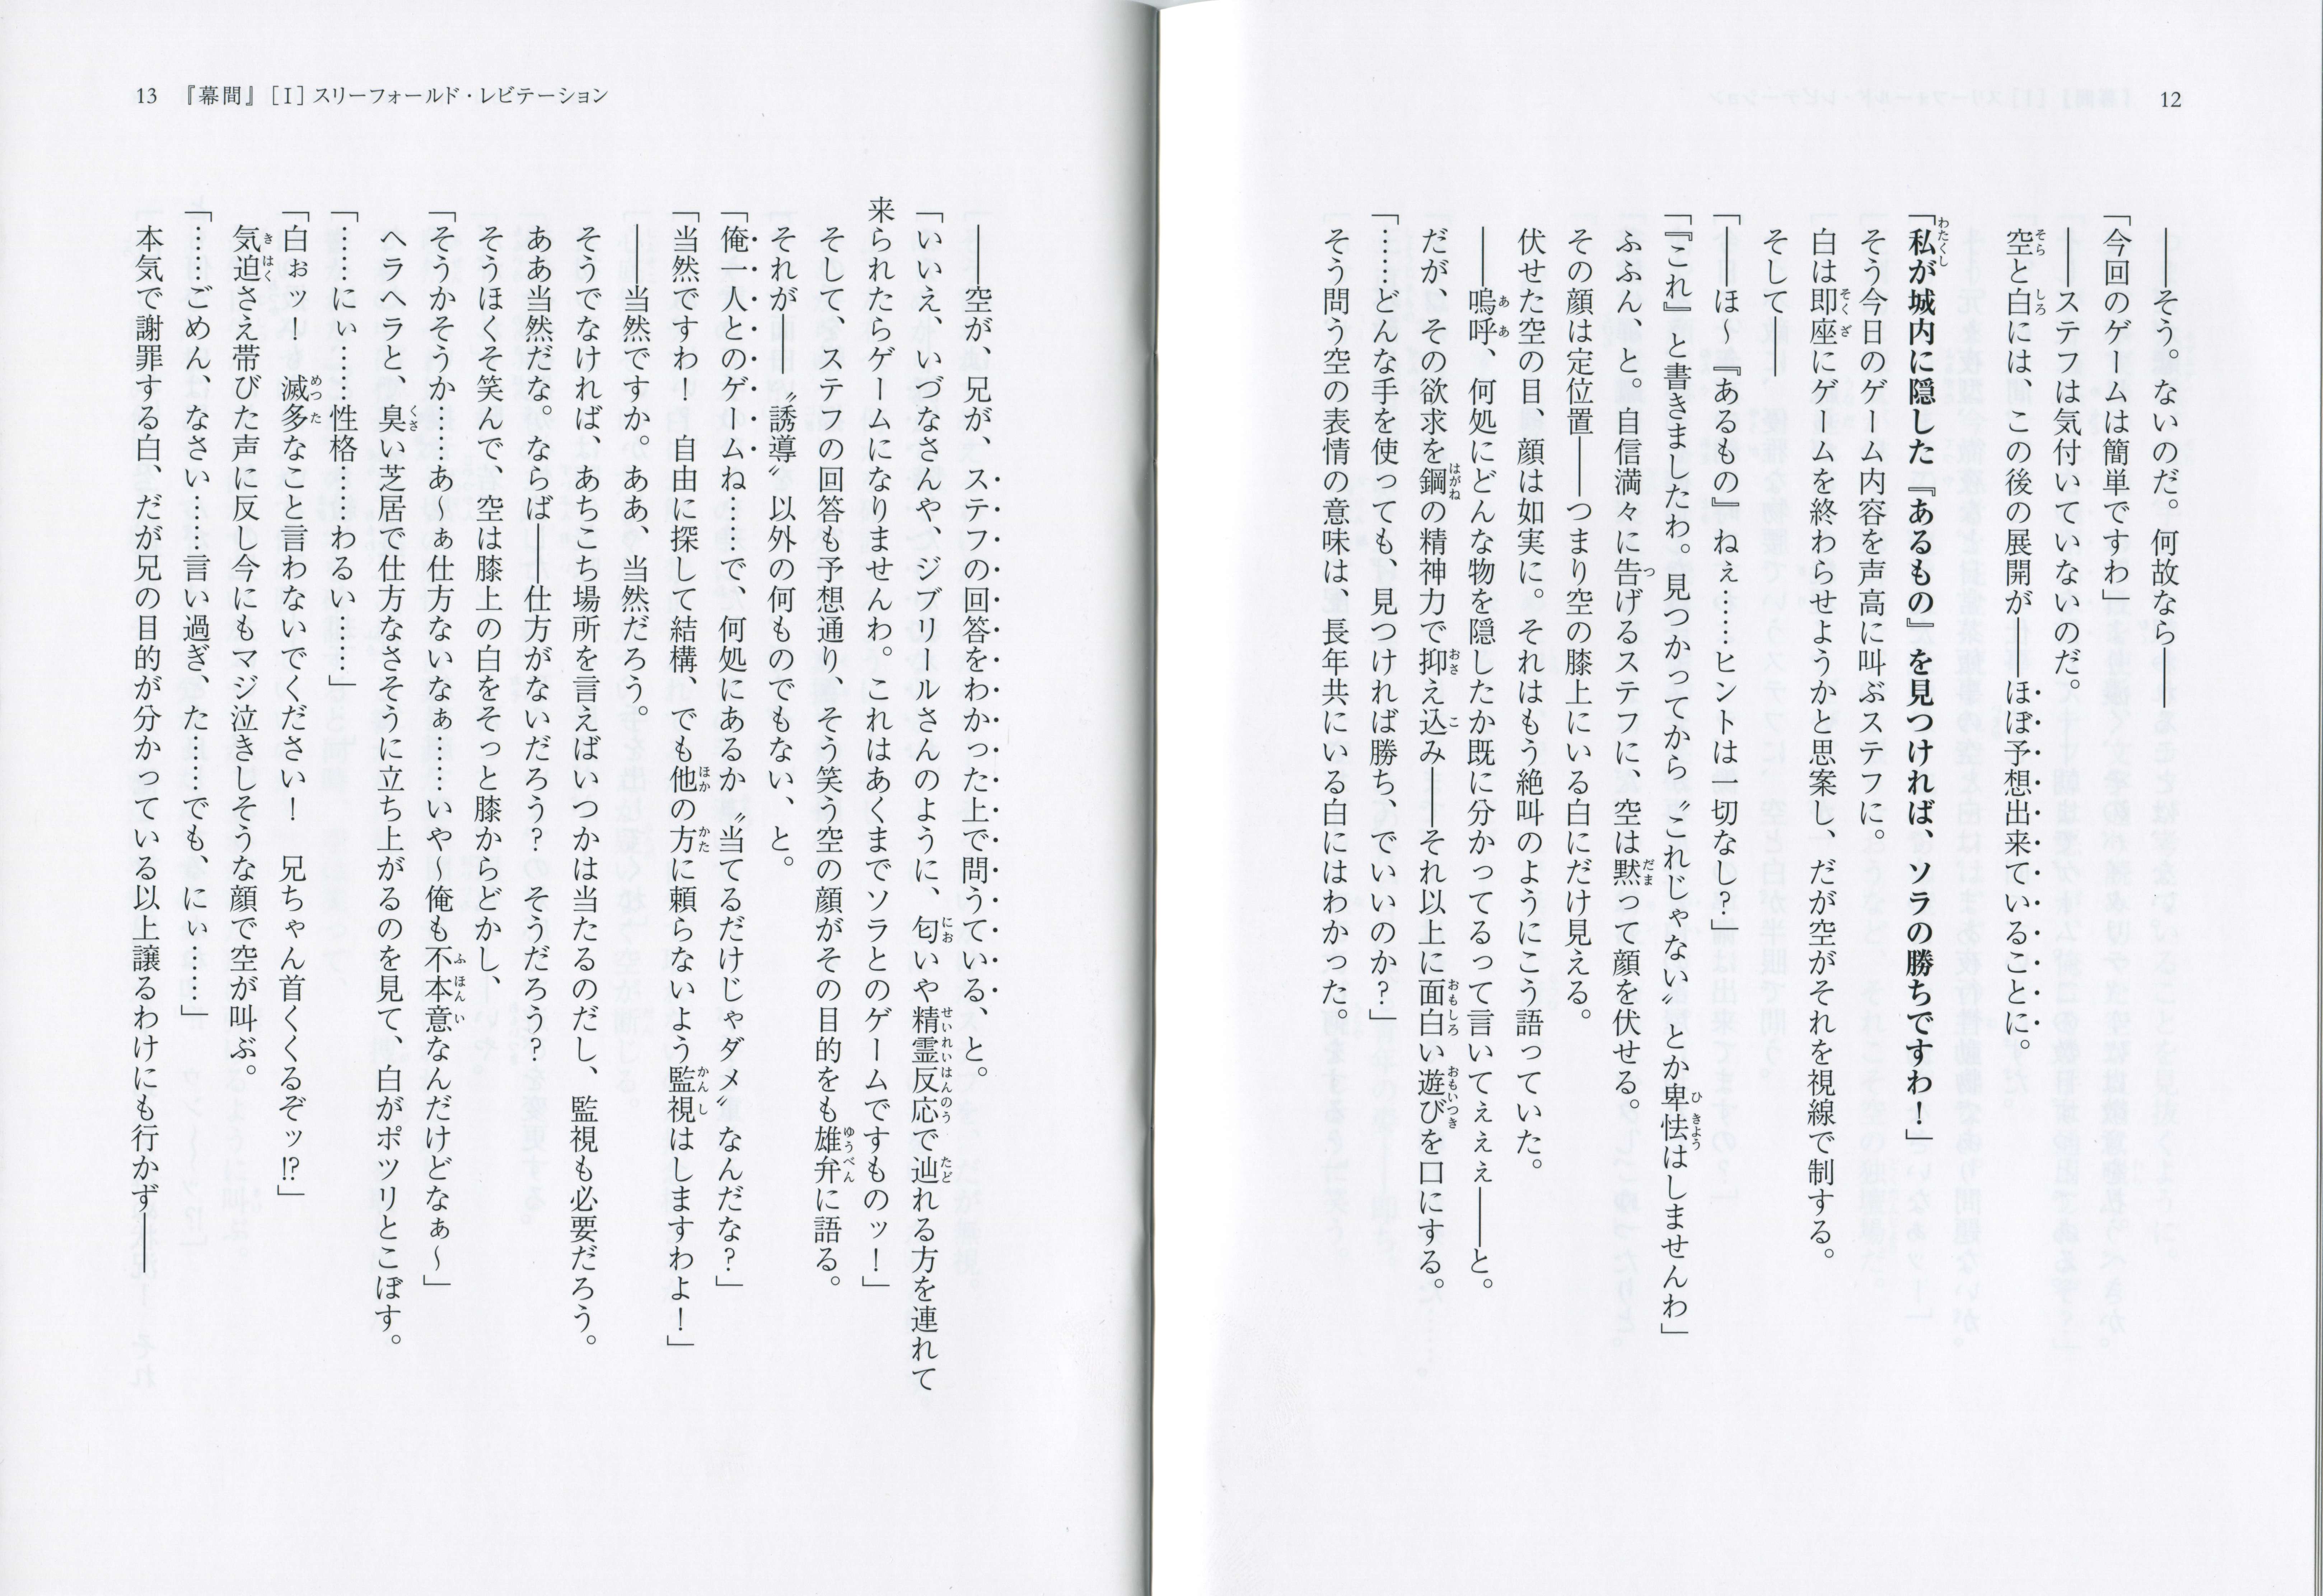 12
――そう。ないのだ。何故なら――
「今回のゲームは簡単ですわ」
――ステフは気付いていないのだ。
空と白には、この後の展開が――ほぼ予想出来ていることに。
「私が城内に隠した『あるもの』を見つければ、ソラの勝ちですわ！」
そう今日のゲーム内容を声高に叫ぶステフに。
白は即座にゲームを終わらせようかと思案し、だが空がそれを視線で制する。
そして――
「――ほ～『あるもの』ねぇ……ヒントは一切なし？」
「『これ』と書きましたわ。見つかってから〝これじゃない〟とか卑怯はしませんわ」
ふふん、と。自信満々に告げるステフに、空は黙って顔を伏せる。
その顔は定位置――つまり空の膝上にいる白にだけ見える。
伏せた空の目、顔は如実に。それはもう絶叫のようにこう語っていた。
――嗚呼、何処にどんな物を隠したか既に分かってるって言いてぇぇぇ――と。
だが、その欲求を鋼の精神力で抑え込み――それ以上に面白い遊びを口にする。
「……どんな手を使っても、見つければ勝ち、でいいのか？」
そう問う空の表情の意味は、長年共にいる白にはわかった。
13 『幕間』［Ⅰ］スリーフォールド・レビテーション
――空が、兄が、ステフの回答をわかった上で問うている、と。
「いいえ、いづなさんや、ジブリールさんのように、匂いや精霊反応で辿れる方を連れて
来られたらゲームになりませんわ。これはあくまでソラとのゲームですものッ！」
そして、ステフの回答も予想通り、そう笑う空の顔がその目的をも雄弁に語る。
それが――〝誘導〟以外の何ものでもない、と。
「俺一人とのゲームね……で、何処にあるか〝当てるだけじゃダメ〟なんだな？」
「当然ですわ！　自由に探して結構、でも他の方に頼らないよう監視はしますわよ！」
――当然ですか。ああ、当然だろう。
そうでなければ、あちこち場所を言えばいつかは当たるのだし、監視も必要だろう。
ああ当然だな。ならば――仕方がないだろう？　そうだろう？
そうほくそ笑んで、空は膝上の白をそっと膝からどかし、
「そうかそうか……あ～ぁ仕方ないなぁ……いや～俺も不本意なんだけどなぁ～」
ヘラヘラと、臭い芝居で仕方なさそうに立ち上がるのを見て、白がポツリとこぼす。
「……にぃ……性格……わるい……」
「白ぉッ！　滅多なこと言わないでください！　兄ちゃん首くくるぞッ!?」
気迫さえ帯びた声に反し今にもマジ泣きしそうな顔で空が叫ぶ。
「……ごめん、なさい……言い過ぎ、た……でも、にぃ……」
本気で謝罪する白、だが兄の目的が分かっている以上譲るわけにも行かず――